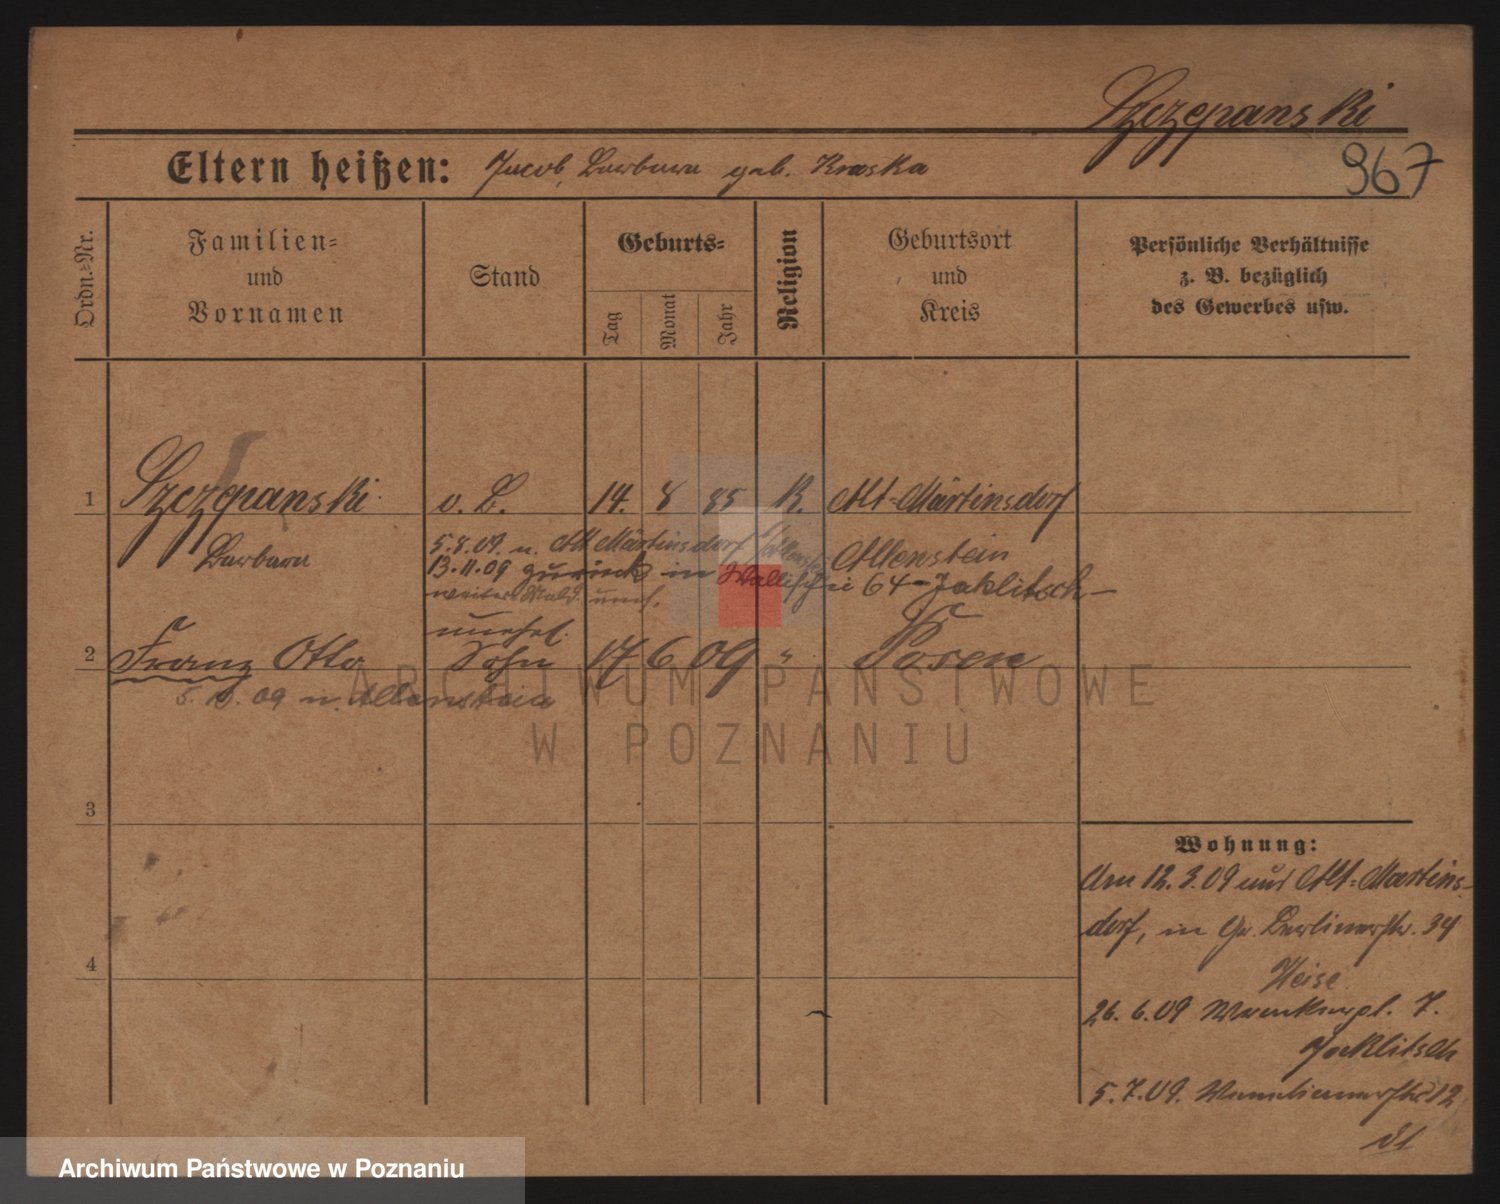 Szczepanski
967
Eltern heißen: Jacob, Barbara geb. Kraska
Ordn.=Nr.
Familien=
und
Vornamen
Stand
Geburts=
Tag
Monat
Jahr
Religion
Geburtsort
und
Kreis
Persönliche Verhältnisse
z. B. bezüglich
des Gewerbes usw.
1 Szczepanski o. B. 14. 8 85 K. Alt-Märtinsdorf
Barbara
5.8.09. n. Alt Märtinsdorf Allenstein
13.11.09 zurück in 64 - Jaklitsch -
unehl.
2 Franz Otto Sohn 17 6 09 " Posen
5. 8. 09 n. Allenstein
3
4
Wohnung:
Am 12.3.09 aus Alt-Martins-
dorf, in Gr. Berlinerstr. 34
Heise
26.6.09 7.
Jacklitsch
5.7.09. 12
ARCHIWUM PAŃSTWOWE
W POZNANIU
Archiwum Państwowe w Poznaniu